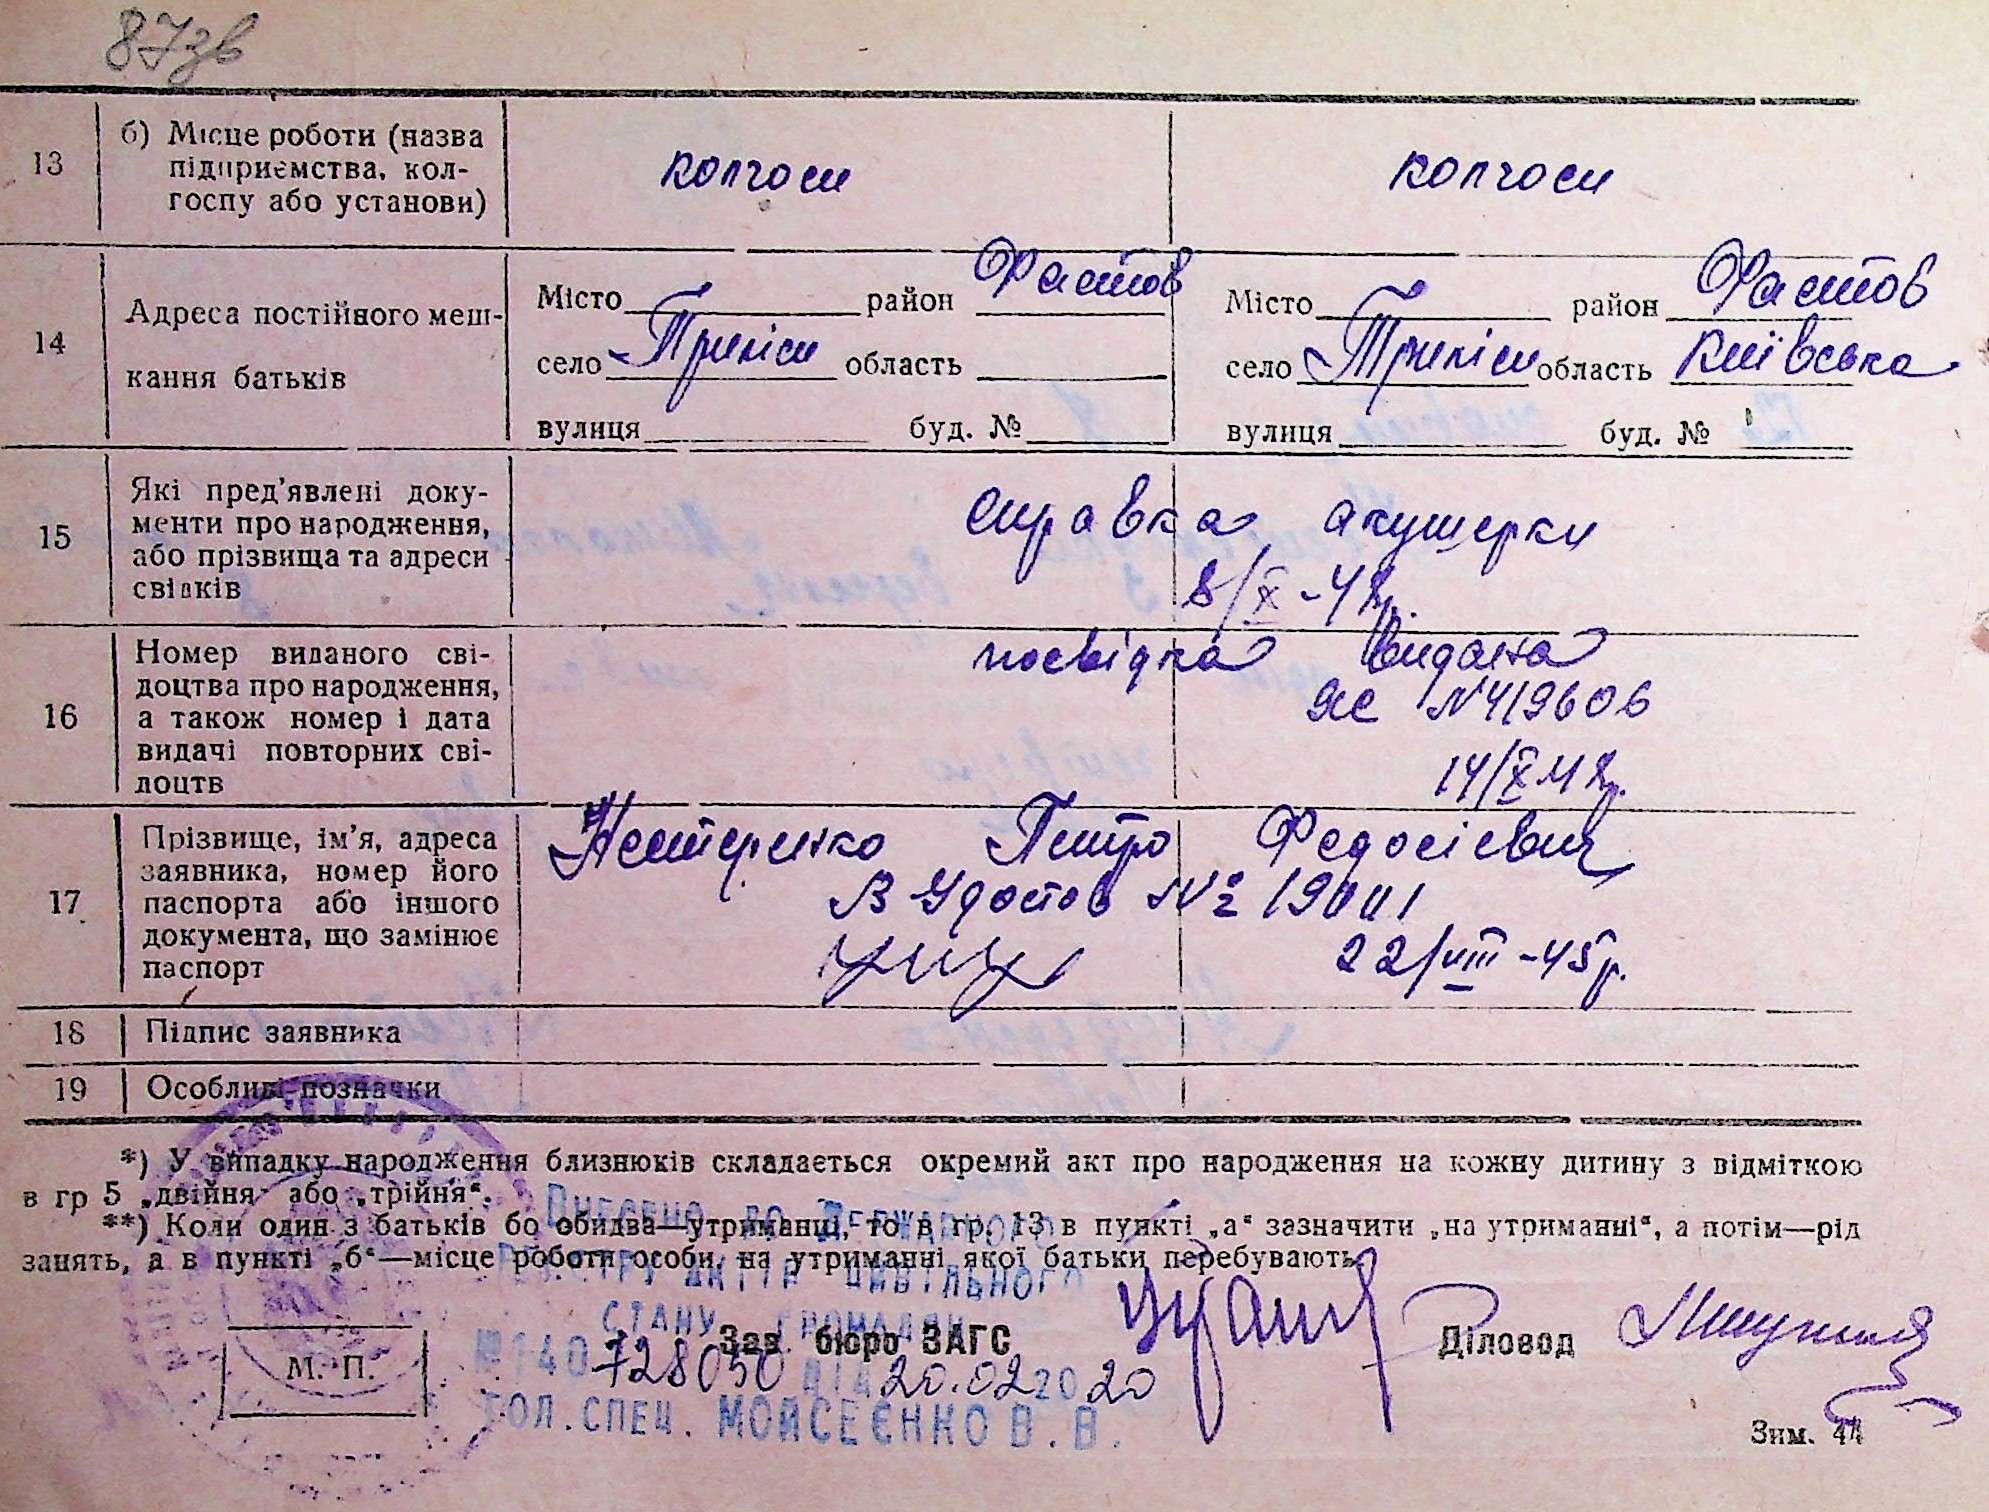 87зв
13
б) Місце роботи (назва
підприємства, кол-
госпу або установи)
колгосп
колгосп
14
Адреса постійного меш-
кання батьків
Місто район Фастов
село Триліси область
вулиця буд. №
Місто район Фастов
село Триліси область Київська
вулиця буд. №
15
Які пред'явлені доку-
менти про народження,
або прізвища та адреси
свідків
справка акушерки
8/X-42р.
16
Номер виданого сві-
доцтва про народження,
а також номер і дата
видачі повторних сві-
доцтв
посвідка видана
ЯС №419606
14/X
17
Прізвище, ім'я, адреса
заявника, номер його
паспорта або іншого
документа, що замінює
паспорт
Нестеренко Петро Федосієвич
В Удостов №
22/VIII-45р.
18
Підпис заявника
19
Особливі позначки
*) У випадку народження близнюків складається окремий акт про народження на кожну дитину з відміткою
в гр 5 „двійня" або „трійня".
**) Коли один з батьків бо обидва—утриманці, то в гр. 13 в пункті „а" зазначити „на утриманні", а потім—рід
занять, а в пункті „б"—місце роботи особи, на утриманні якої батьки перебувають.
ВНЕСЕНО ДО ДЕРЖАВНОГО
РЕЄСТРУ АКТІВ ЦИВІЛЬНОГО
СТАНУ ГРОМАДЯН
Зав. бюро ЗАГС
Діловод
М. П.
№140728050 20.02 2020
ГОЛ.СПЕЦ. МОЙСЕЄНКО В.В.
Зим. 44